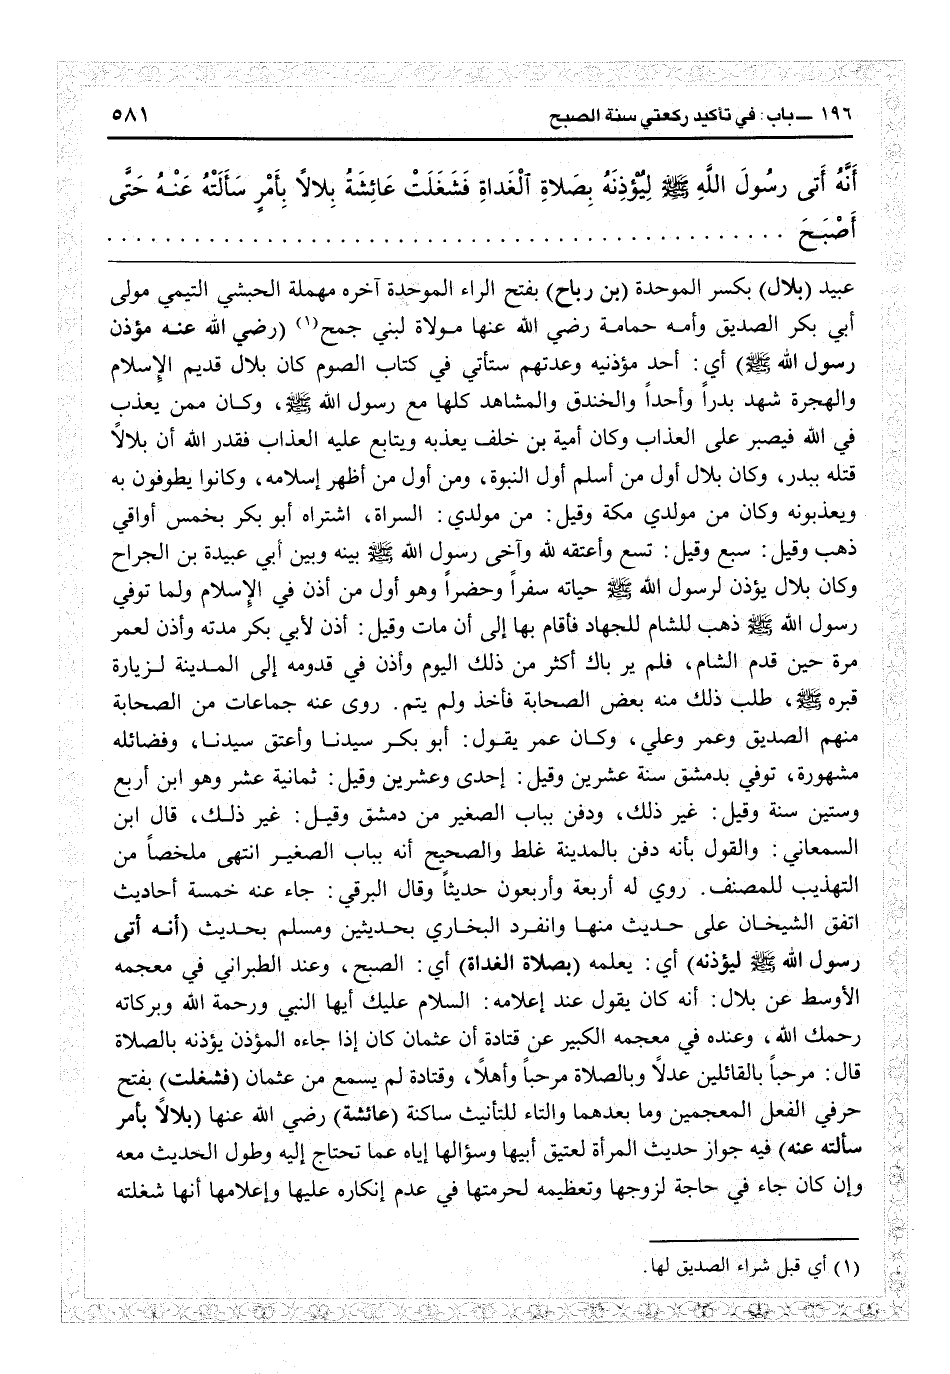 ١٩٦ ـ باب: في تأكيد ركعتي سنة الصبح ٥٨١
أَنَّهُ أَتَى رسُولَ اللَّهِ ﷺ لِيُؤْذِنَهُ بِصَلاةِ ٱلْغَداةِ فَشَغَلَتْ عَائِشَةُ بِلالاً بِأَمْرٍ سَأَلَتْهُ عَنْـهُ حَتَّى
أَصْبَـحَ . . . . . . . . . . . . . . . . . . . . . . . . . . . . . . . . . . . . . . . . . . . .
عبيد (بلال) بكسر الموحدة (بن رباح) بفتح الراء الموحدة آخره مهملة الحبشي التيمي مولى
أبي بكر الصديق وأمـه حمامـة رضي الله عنها مـولاة لبني جمح(١) (رضي الله عنـه مؤذن
رسول الله ﷺ) أي: أحد مؤذنيه وعدتهم ستأتي في كتاب الصوم كان بلال قديم الإسلام
والهجرة شهد بدراً وأحداً والخندق والمشاهد كلها مع رسول الله ﷺ، وكـان ممن يعذب
في الله فيصبر على العذاب وكان أمية بن خلف يعذبه ويتابع عليه العذاب فقدر الله أن بلالاً
قتله ببدر، وكان بلال أول من أسلم أول النبوة، ومن أول من أظهر إسلامه، وكانوا يطوفون به
ويعذبونه وكان من مولدي مكة وقيل: من مولدي: السراة، اشتراه أبو بكر بخمس أواقي
ذهب وقيل: سبع وقيل: تسع وأعتقه لله وآخى رسول الله ﷺ بينه وبين أبي عبيدة بن الجراح
وكان بلال يؤذن لرسول الله ﷺ حياته سفراً وحضراً وهو أول من أذن في الإسلام ولما توفي
رسول الله ﷺ ذهب للشام للجهاد فأقام بها إلى أن مات وقيل: أذن لأبي بكر مدته وأذن لعمر
مرة حين قدم الشام، فلم ير باك أكثر من ذلك اليوم وأذن في قدومه إلى المـدينة لـزيارة
قبره ﷺ، طلب ذلك منه بعض الصحابة فأخذ ولم يتم. روى عنه جماعات من الصحابة
منهم الصديق وعمر وعلي، وكـان عمر يقـول: أبو بكـر سيدنـا وأعتق سيدنـا، وفضائله
مشهورة، توفي بدمشق سنة عشرين وقيل: إحدى وعشرين وقيل: ثمانية عشر وهو ابن أربع
وستين سنة وقيل: غير ذلك، ودفن بباب الصغير من دمشق وقيـل: غير ذلـك، قال ابن
السمعاني: والقول بأنه دفن بالمدينة غلط والصحيح أنه بباب الصغيـر انتهى ملخصاً من
التهذيب للمصنف. روي له أربعة وأربعون حديثاً وقال البرقي: جاء عنه خمسة أحاديث
اتفق الشيخـان على حـديث منهـا وانفـرد البخـاري بحـديثين ومسلم بحـديث (أنـه أتى
رسول الله ﷺ ليؤذنه) أي: يعلمه (بصلاة الغداة) أي: الصبح، وعند الطبراني في معجمه
الأوسط عن بلال: أنه كان يقول عند إعلامه: السلام عليك أيها النبي ورحمة الله وبركاته
رحمك الله، وعنده في معجمه الكبير عن قتادة أن عثمان كان إذا جاءه المؤذن يؤذنه بالصلاة
قال: مرحباً بالقائلين عدلاً وبالصلاة مرحباً وأهلاً، وقتادة لم يسمع من عثمان (فشغلت) بفتح
حرفي الفعل المعجمين وما بعدهما والتاء للتأنيث ساكنة (عائشة) رضي الله عنها (بلالاً بأمر
سألته عنه) فيه جواز حديث المرأة لعتيق أبيها وسؤالها إياه عما تحتاج إليه وطول الحديث معه
وإن كان جاء في حاجة لزوجها وتعظيمه لحرمتها في عدم إنكاره عليها وإعلامها أنها شغلته
(١) أي قبل شراء الصديق لها.